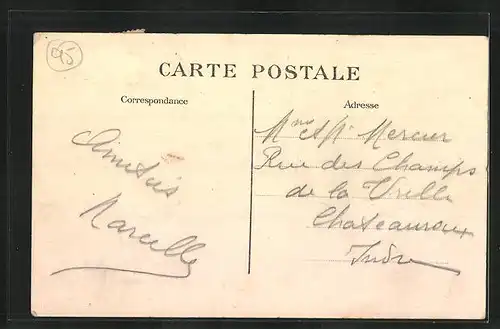 95
CARTE POSTALE
Correspondance
Adresse
Amitiés
Marcelle
Mme et Mr Mercier
Rue des Champs
de la Vrille
Chateauroux
Indre